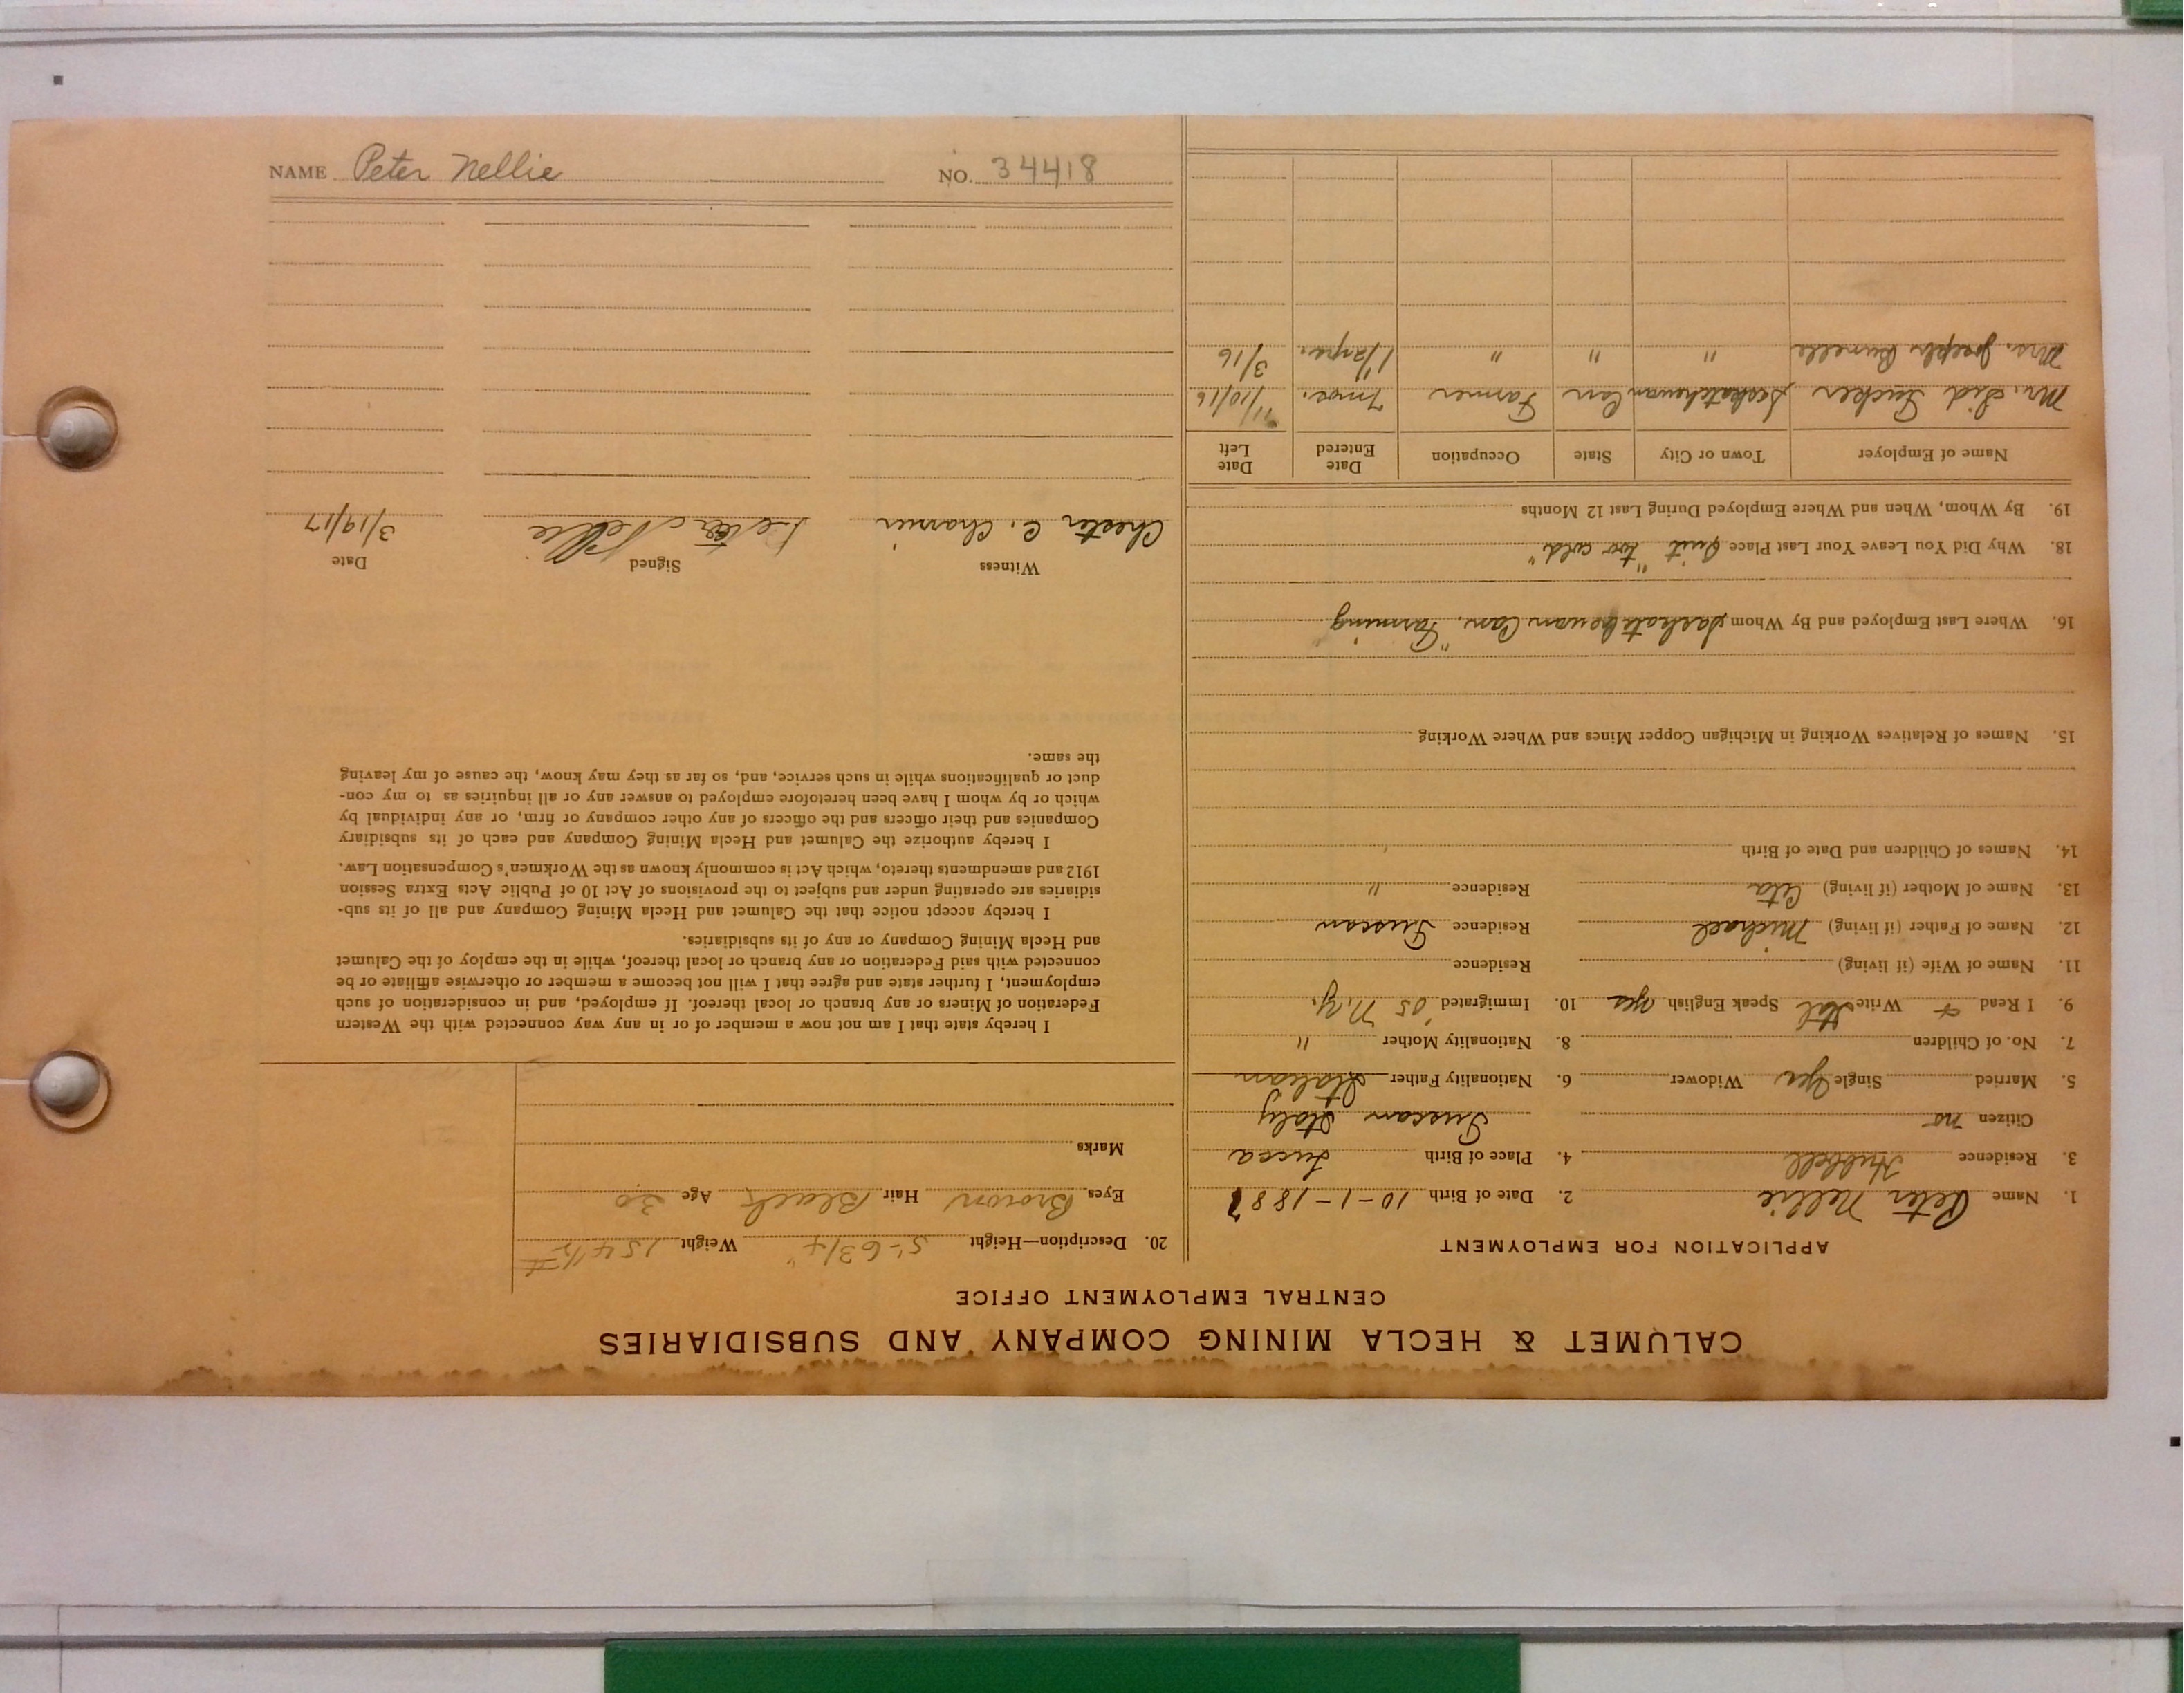 NAME Peter Nellie NO. 34418
CALUMET & HECLA MINING COMPANY AND SUBSIDIARIES
CENTRAL EMPLOYMENT OFFICE
APPLICATION FOR EMPLOYMENT
1. Name Peter Nellie 2. Date of Birth 10-1-1887
3. Residence Hubbell 4. Place of Birth Lucca
Citizen no Tuscan Italy
5. Married Single Yes Widower 6. Nationality Father Italian
7. No. of Children 8. Nationality Mother "
9. I Read & Write Ital Speak English yes 10. Immigrated '05 N.Y.
11. Name of Wife (if living) Residence
12. Name of Father (if living) Michael Residence Tuscan
13. Name of Mother (if living) Residence "
14. Names of Children and Date of Birth
15. Names of Relatives Working in Michigan Copper Mines and Where Working
16. Where Last Employed and By Whom Saskatchewan Can. "Farming
18. Why Did You Leave Your Last Place Quit "too cold"
19. By Whom, When and Where Employed During Last 12 Months
Name of Employer Town or City State Occupation Date Entered Date Left
Mr. Sid Tucker Saskatchewan Can Farmer 7 mos. 11/10/16
Mrs. Joseph " " " 3/16
20. Description—Height 5'-6 3/4" Weight 154 1/2 #
Eyes Brown Hair Black Age 30
Marks
I hereby state that I am not now a member of or in any way connected with the Western
Federation of Miners or any branch or local thereof. If employed, and in consideration of such
employment, I further state and agree that I will not become a member or otherwise affiliate or be
connected with said Federation or any branch or local thereof, while in the employ of the Calumet
and Hecla Mining Company or any of its subsidiaries.
I hereby accept notice that the Calumet and Hecla Mining Company and all of its sub-
sidiaries are operating under and subject to the provisions of Act 10 of Public Acts Extra Session
1912 and amendments thereto, which Act is commonly known as the Workmen's Compensation Law.
I hereby authorize the Calumet and Hecla Mining Company and each of its subsidiary
Companies and their officers and the officers of any other company or firm, or any individual by
which or by whom I have been heretofore employed to answer any or all inquiries as to my con-
duct or qualifications while in such service, and, so far as they may know, the cause of my leaving
the same.
Witness Signed Date
Chester C. Peter Nellie 3/19/17